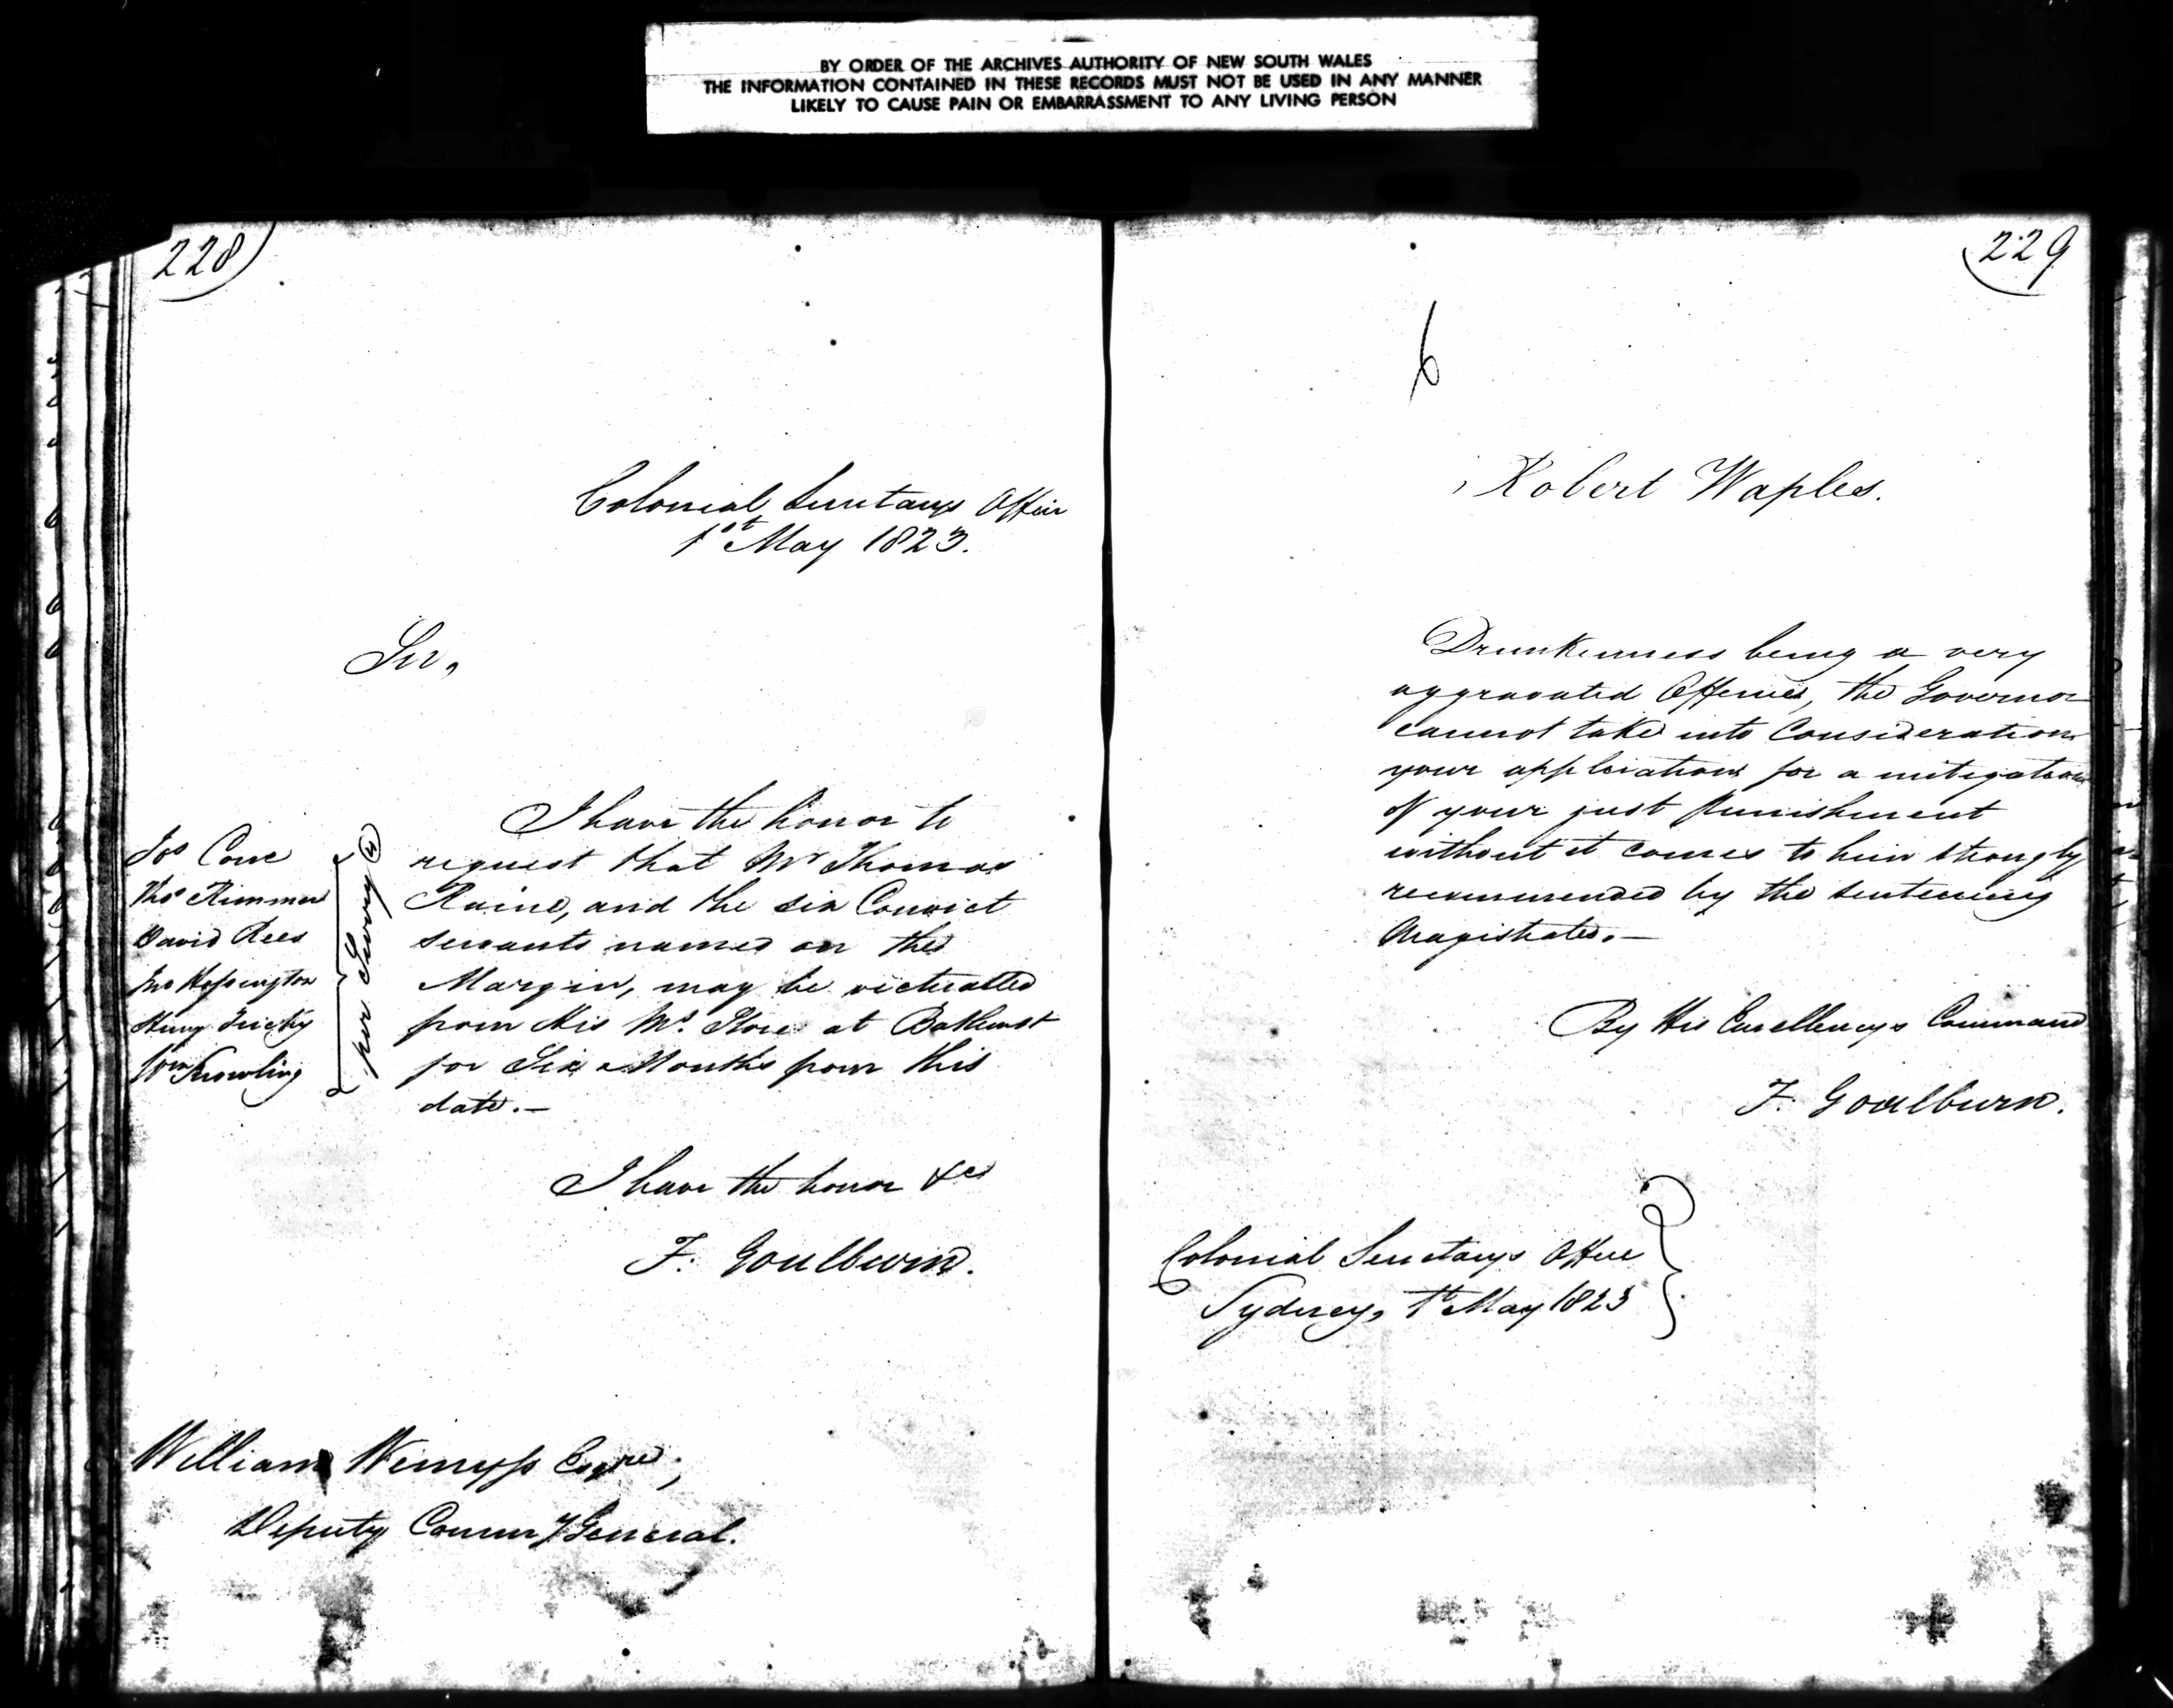 BY ORDER OF THE ARCHIVES AUTHORITY OF NEW SOUTH WALES
THE INFORMATION CONTAINED IN THESE RECORDS MUST NOT BE USED IN ANY MANNER
LIKELY TO CAUSE PAIN OR EMBARRASSMENT TO ANY LIVING PERSON
228
Colonial Secretarys Office
1st May 1823.
Sir,
I have the honor to
request that Mr Thomas
Raine, and the six Convict
servants named on the
Margin, may be victualled
from His M's. Store at Bathurst
for Six Months from this
date.—
Jos Cove
Thos Rimmer
David Rees
Jno Hossington
Henry
Wm Snowling
per
I have the honor &ca
F. Goulburn.
William Wemyss Esqre,
Deputy Commy General.
229
6
Robert Waples.
Drunkenness being a very
aggravated Offence, the Governor
cannot take into Consideration
your application for a mitigation
of your just Punishment
without it comes to him strongly
recommended by the sentencing
Magistrates.—
By His Excellencys Command
F. Goulburn.
Colonial Secretarys Office
Sydney, 1st May 1823